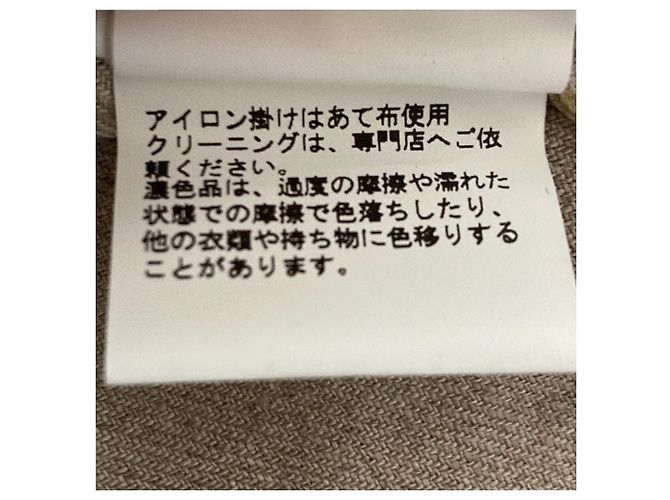 アイロン掛けはあて布使用
クリーニングは、専門店へご依
頼ください。
濃色品は、過度の摩擦や濡れた
状態での摩擦で色落ちしたり、
他の衣類や持ち物に色移りする
ことがあります。